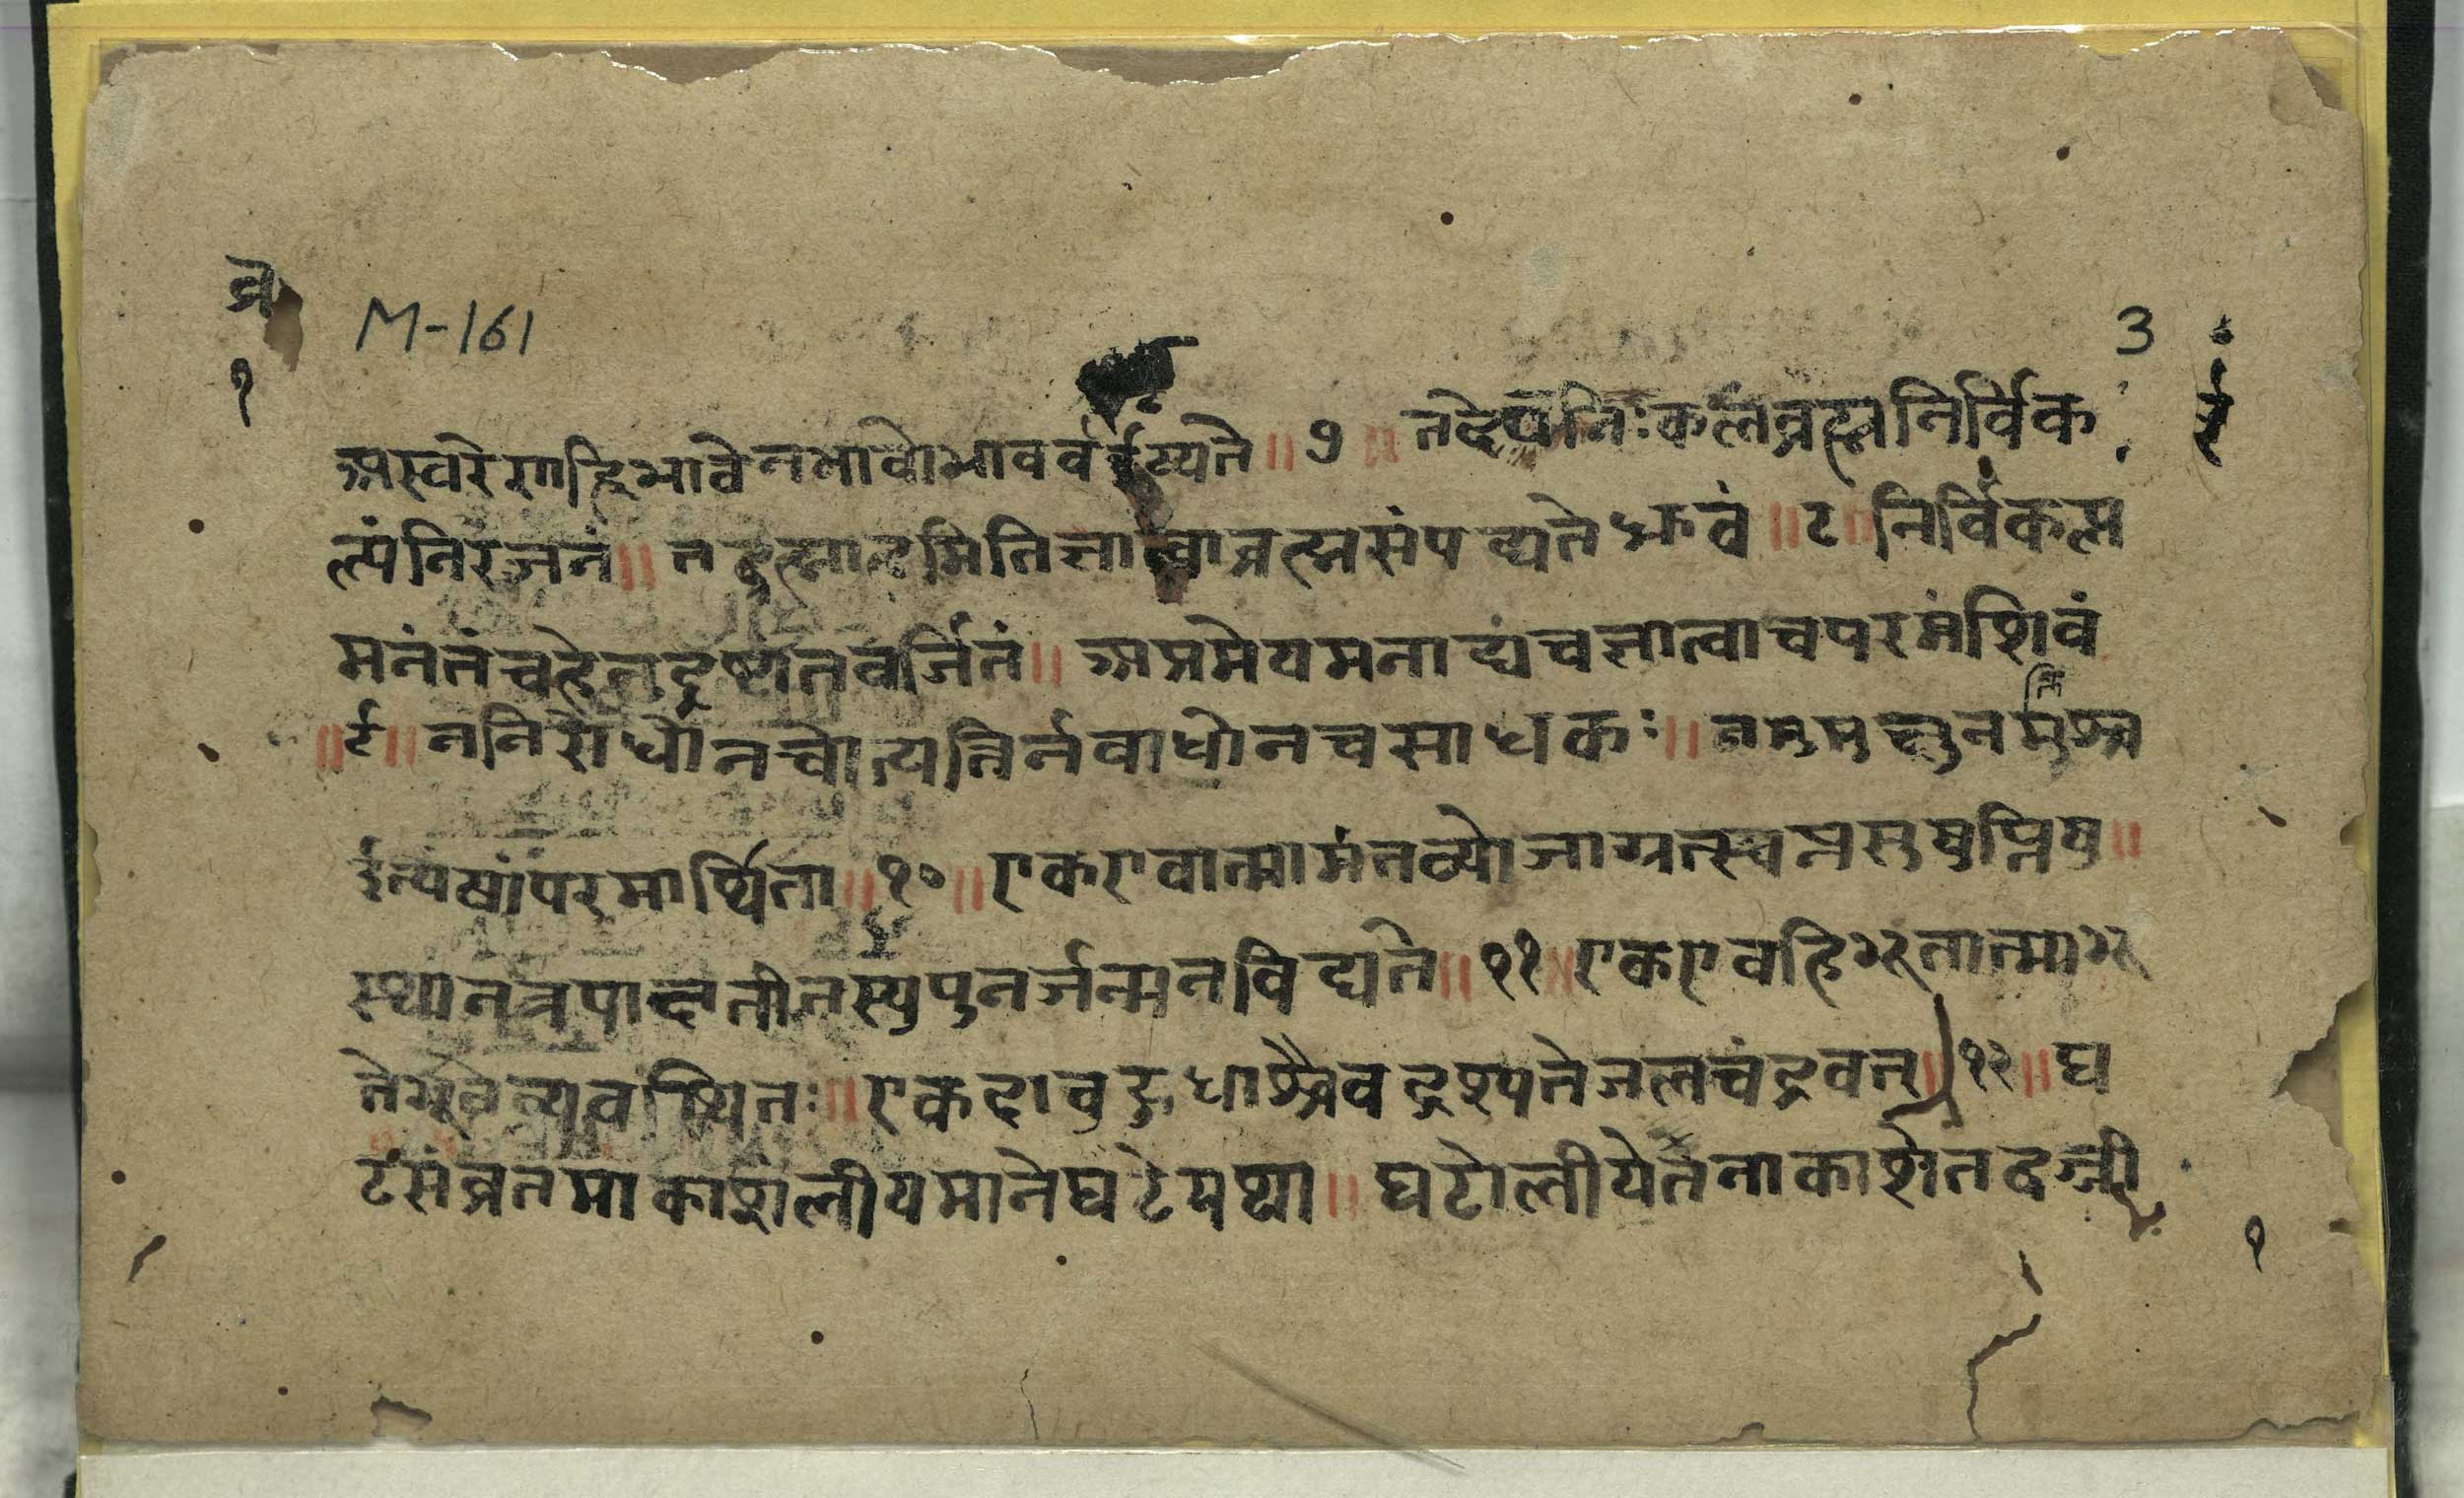 ब्र
M-161
3
१
अस्वरेणहिभावेनभावोभाववर्इष्यते॥७॥तदेवनिःकलंब्रह्मनिर्विक
ल्पंनिरंजनं॥तद्ब्रह्माहमितिज्ञात्वाब्रह्मसंपद्यतेध्रुवं॥८॥निर्विकल्प
मनंतंचहेतुदृष्टांतवर्जितं॥अप्रमेयमनाद्यंचज्ञात्वाचपरमंशिवं
॥९॥ननिरोधोनचोत्पत्तिर्नबाधोनचसाधकः॥नमुमुक्षुनमुक्तिश्च
इत्येषांपरमार्थिता॥१०॥एकएवात्मामंतव्योजाग्रत्स्वप्नसुषुप्तिषु॥
स्थानत्रपादतीतस्यपुनर्जन्मनविद्यते॥११॥एकएवहिभूतात्माभू
तेभूतेव्यवस्थितः॥एकदाबहुधाश्चैवदृश्यतेजलचंद्रवत्॥१२॥घ
टसंव्रतमाकाशंलीयमानेघटेयथा॥घटोलीयेतनाकाशंतदज्जी
१